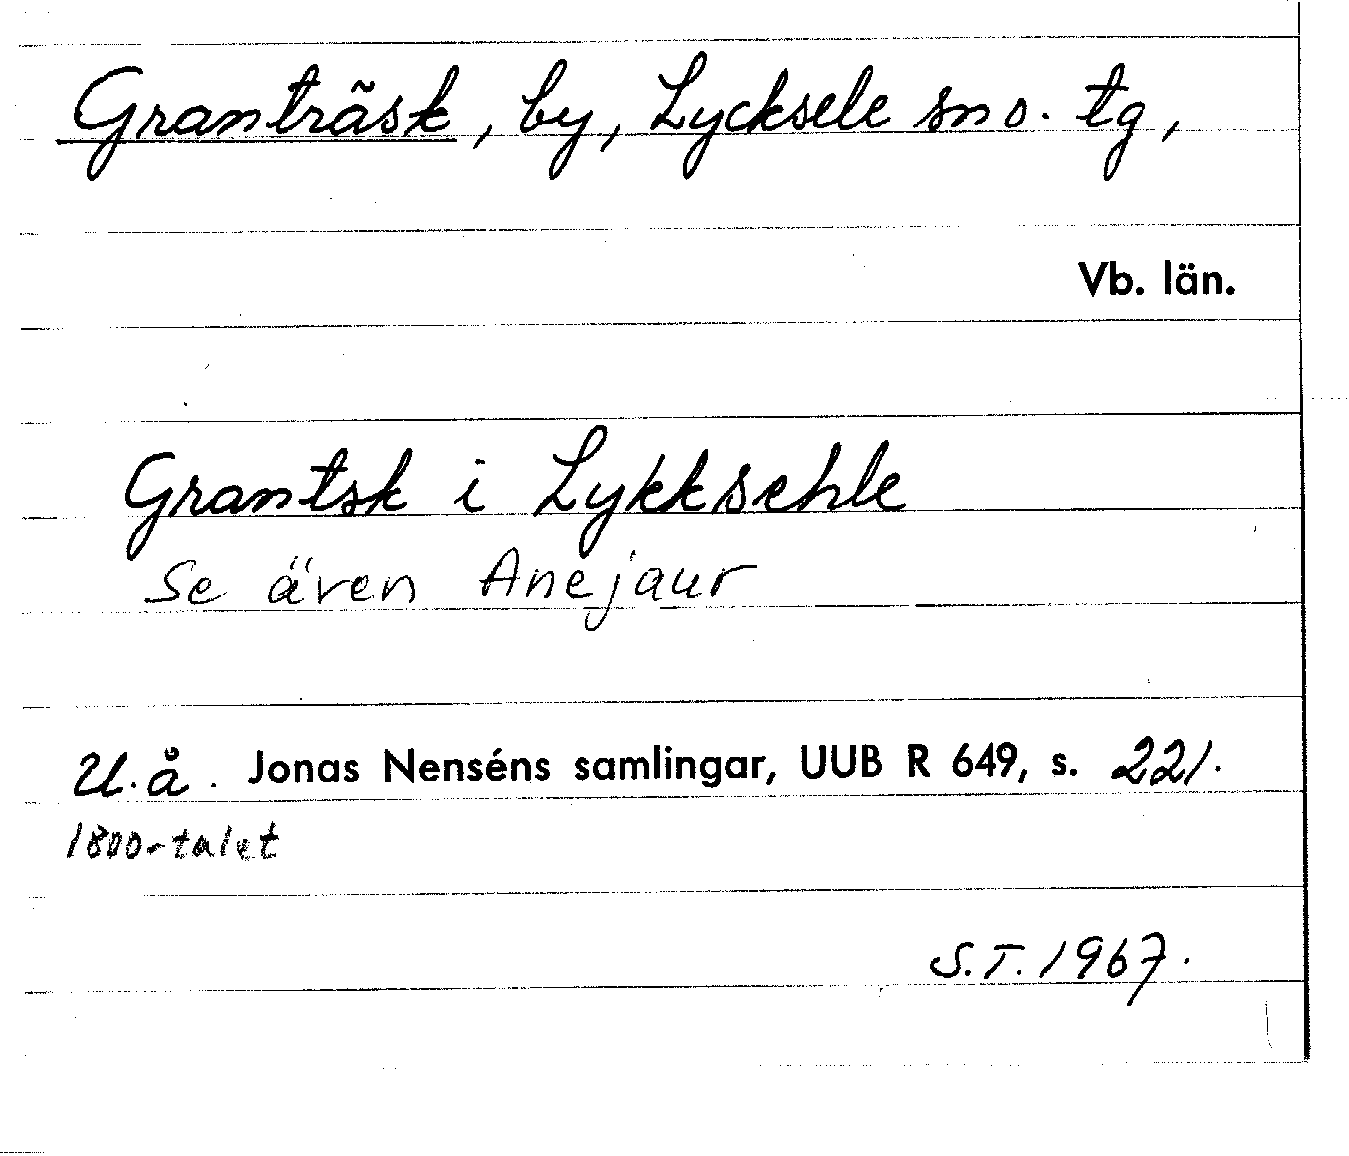 Granträsk, by, Lycksele sn o. tg,
Vb. län.
Grantsk i Lykksehle
Se även Anejaur
U.å. Jonas Nenséns samlingar, UUB R 649, s. 221.
1800-talet
S.T. 1967.